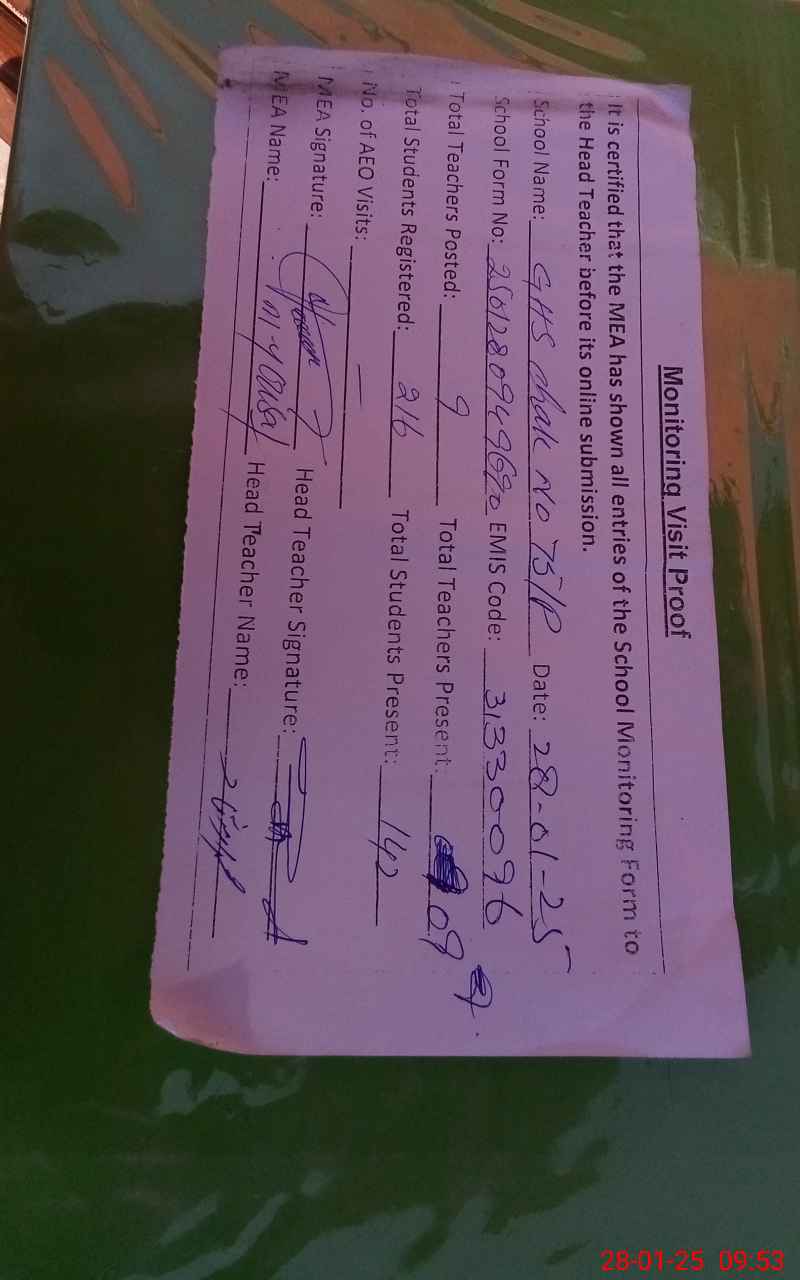 Monitoring Visit Proof
It is certified that the MEA has shown all entries of the School Monitoring Form to
the Head Teacher before its online submission.
School Name: GHS chak No 75/P Date: 28-01-25
School Form No: EMIS Code: 31330096
Total Teachers Posted: 9 Total Teachers Present: 09
Total Students Registered: 216 Total Students Present: 142
No. of AEO Visits: —
MEA Signature: Head Teacher Signature:
MEA Name: Head Teacher Name:
28-01-25 09:53